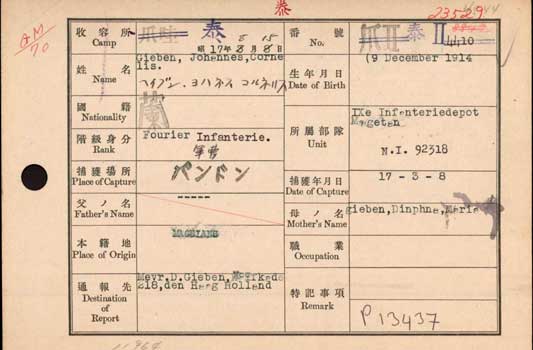 泰
23529
GM/70
收容所 Camp
爪哇 泰
8 15
昭 17年 3月 8日
番號 No.
爪II 泰 II
4410
姓名 Name
Gieben, Johannes,Corne
lis.
ヘイブン、ヨハネス コルネリス
生年月日 Date of Birth
19 December 1914
國籍 Nationality
蘭
所屬部隊 Unit
IXe Infanteriedepot
Magetan
N.I. 92318
階級身分 Rank
Fourier Infanterie.
軍曹
捕獲場所 Place of Capture
バンドン
捕獲年月日 Date of Capture
17 - 3 - 8
父ノ名 Father's Name
-----
母ノ名 Mother's Name
gieben,Dinphna,Maria
本籍地 Place of Origin
MAGELANG
職業 Occupation
通報先 Destination of Report
Mevr.D.Gieben,
218,den Haag Holland
特記事項 Remark
P13437